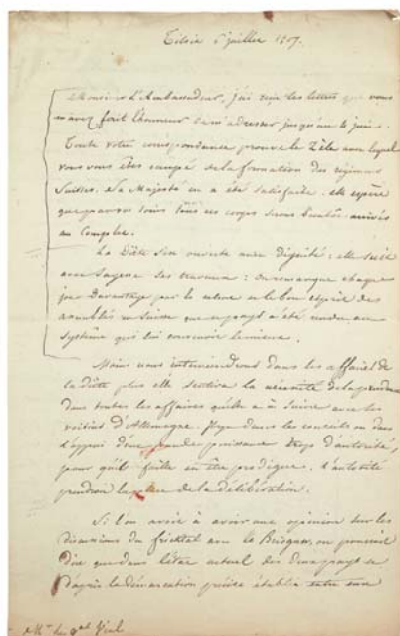 Tilsit juillet 1807.
Monsieur l'Ambassadeur, j'ai reçu les lettres que vous
m'avez fait l'honneur de m'adresser jusqu'au juin.
Toute votre correspondance prouve le zèle avec lequel
vous vous êtes occupé de la formation des régimens
Suisses. Sa Majesté en a été satisfaite. elle espère
que par vos soins tous ces corps seront bientôt arrivés
au Complet.
La Diète s'est ouverte avec dignité : elle suit
avec sagesse ses travaux : on remarque chaque
jour davantage par le calme et le bon esprit des
en Suisse que ce pays a été rendu au
système qui lui convenoit le mieux.
Moins nous interviendrons dans les affaires de
la diète plus elle sentira la nécessité de la prudence
dans toutes les affaires qu'elle a à suivre avec les
d'Allemagne. dans les conseils ou dans
l'appui d'une grande puissance trop d'autorité,
pour qu'il faille en être prodigue. l'autorité
prendroit la place de la délibération.
Si l'on avoit à avoir une opinion sur les
discussions du fricktal avec le Brisgau, on pourroit
dire que dans l'état actuel des deux pays et
d'après la démarcation précise établie entre eux
Mr. le gal Vial